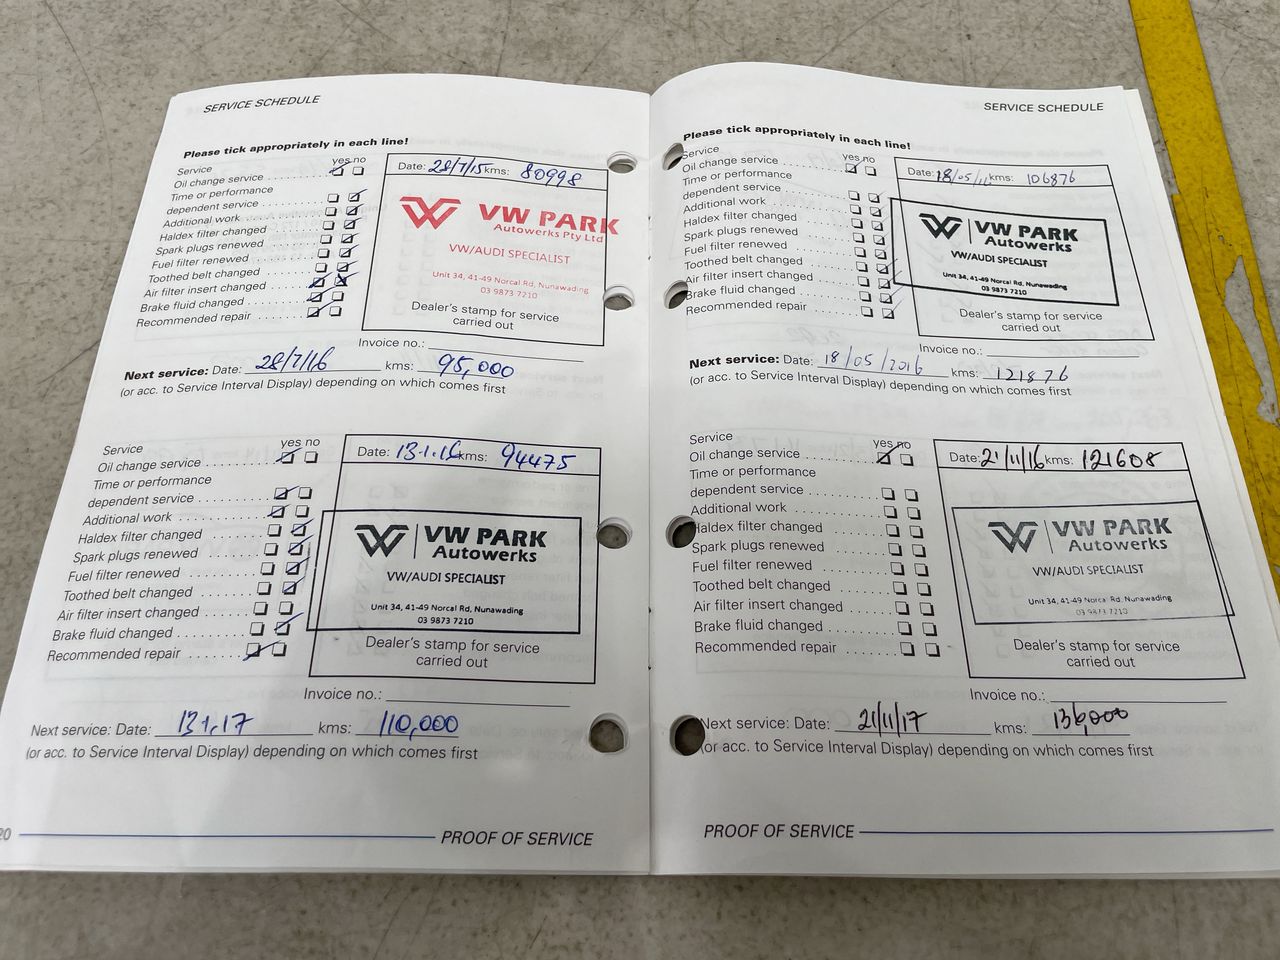 SERVICE SCHEDULE
Please tick appropriately in each line!
Service yes no
Oil change service
Time or performance
dependent service
Additional work
Haldex filter changed
Spark plugs renewed
Fuel filter renewed
Toothed belt changed
Air filter insert changed
Brake fluid changed
Recommended repair
Date: 28/7/15 kms: 80998
VW PARK
Autowerks Pty Ltd
VW/AUDI SPECIALIST
Unit 34, 41-49 Norcal Rd, Nunawading
03 9873 7210
Dealer's stamp for service
carried out
Invoice no.:
Next service: Date: 28/7/16 kms: 95,000
(or acc. to Service Interval Display) depending on which comes first
Service yes no
Oil change service
Time or performance
dependent service
Additional work
Haldex filter changed
Spark plugs renewed
Fuel filter renewed
Toothed belt changed
Air filter insert changed
Brake fluid changed
Recommended repair
Date: 13.1.16 kms: 94475
VW PARK
Autowerks
VW/AUDI SPECIALIST
Unit 34, 41-49 Norcal Rd, Nunawading
03 9873 7210
Dealer's stamp for service
carried out
Invoice no.:
Next service: Date: 13.1.17 kms: 110,000
(or acc. to Service Interval Display) depending on which comes first
20 PROOF OF SERVICE
SERVICE SCHEDULE
Please tick appropriately in each line!
Service yes no
Oil change service
Time or performance
dependent service
Additional work
Haldex filter changed
Spark plugs renewed
Fuel filter renewed
Toothed belt changed
Air filter insert changed
Brake fluid changed
Recommended repair
Date: 18/05/16 kms: 106876
VW PARK
Autowerks
VW/AUDI SPECIALIST
Unit 34, 41-49 Norcal Rd, Nunawading
03 9873 7210
Dealer's stamp for service
carried out
Invoice no.:
Next service: Date: 18/05/2016 kms: 121876
(or acc. to Service Interval Display) depending on which comes first
Service yes no
Oil change service
Time or performance
dependent service
Additional work
Haldex filter changed
Spark plugs renewed
Fuel filter renewed
Toothed belt changed
Air filter insert changed
Brake fluid changed
Recommended repair
Date: 21/11/16 kms: 121608
VW PARK
Autowerks
VW/AUDI SPECIALIST
Unit 34, 41-49 Norcal Rd, Nunawading
03 9873 7210
Dealer's stamp for service
carried out
Invoice no.:
Next service: Date: 21/11/17 kms: 136,000
(or acc. to Service Interval Display) depending on which comes first
PROOF OF SERVICE